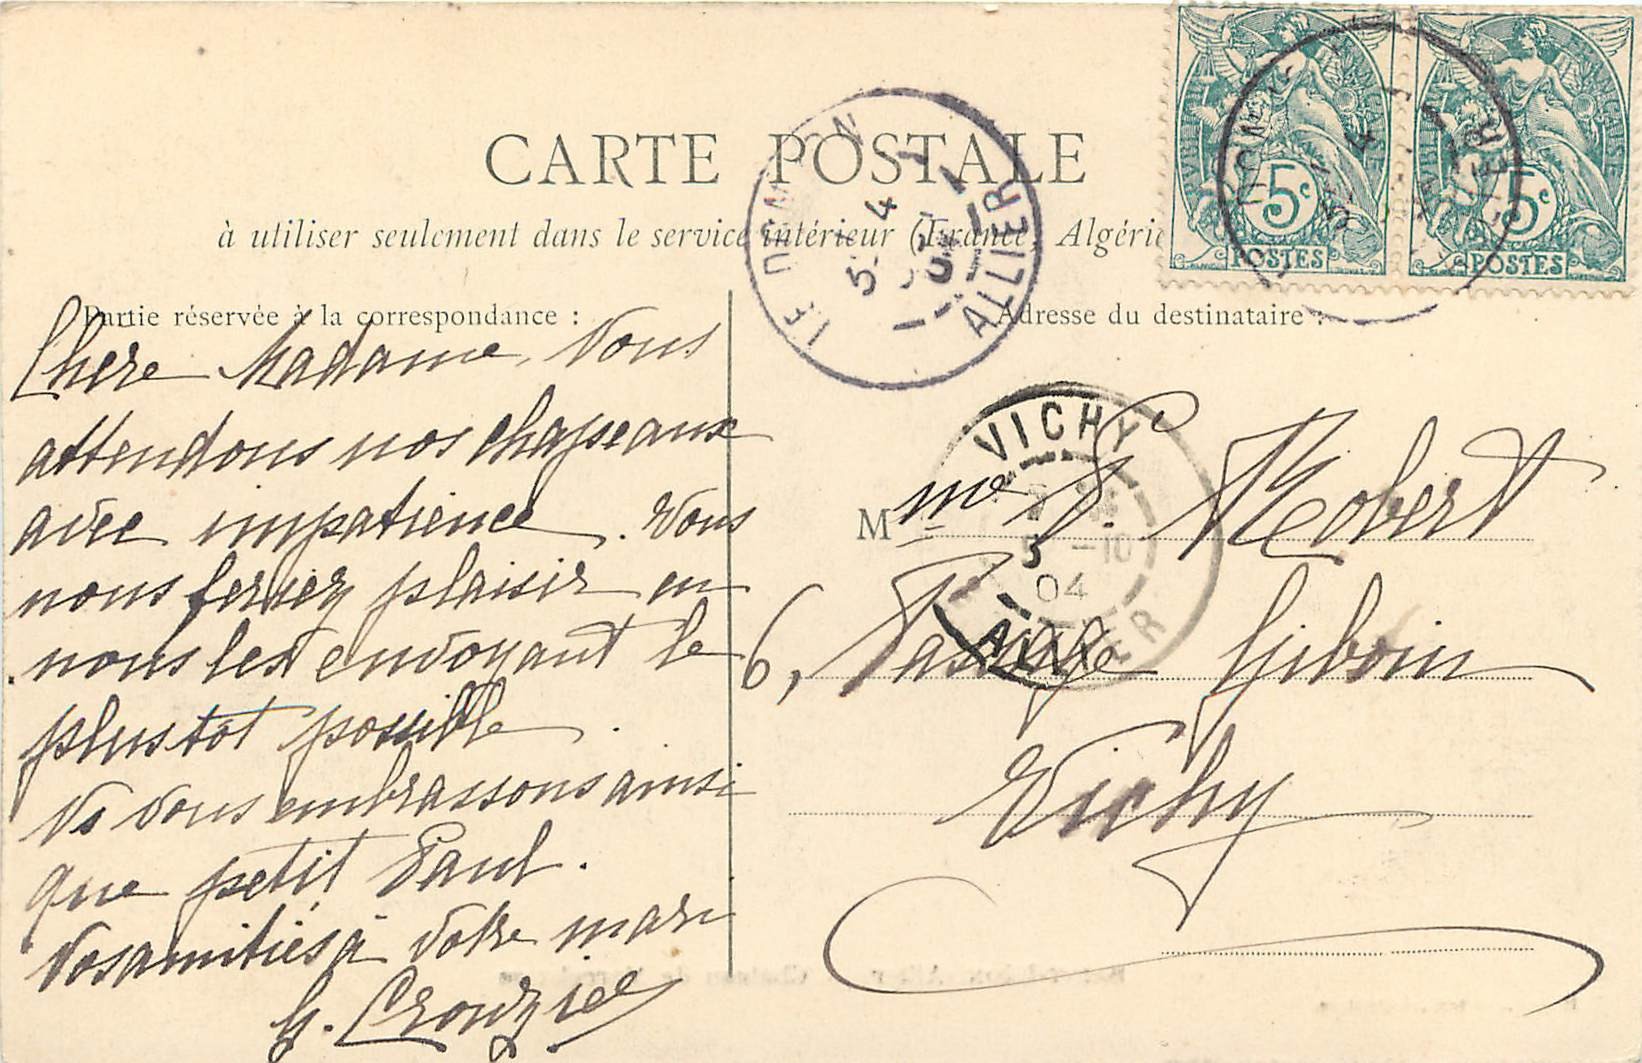 CARTE POSTALE
à utiliser seulement dans le service intérieur (France, Algérie
Partie réservée à la correspondance :
Chère Madame, Nous
attendons nos chapeaux
avec impatience. Vous
nous feriez plaisir en
nous les envoyant le
plus tôt possible.
Ns vous embrassons ainsi
que petit Paul.
Nos amitiés à votre mari
G. Crouzier
Adresse du destinataire :
Mme J. Robert
6, Passage Giboin
Vichy
LE DONJON
5 4
ALLIER
VICHY
5 -10
04
ALLIER
5c
POSTES
5c
POSTES
DONJ
4
LIER